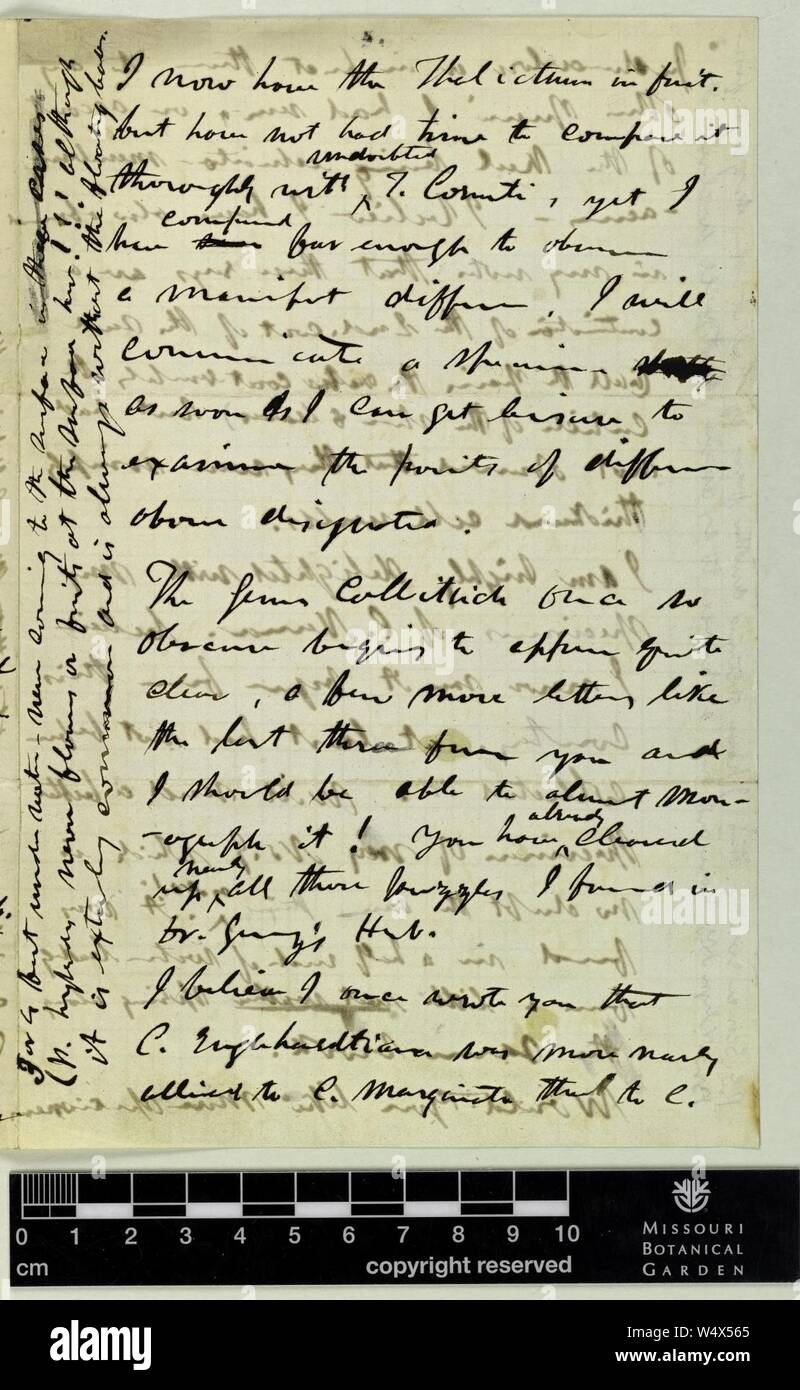 I now have the Thalictrum in fruit.
but have not had time to compare it
undoubted
thoroughly with ^ T. Cornuti, yet I
compared
have far enough to observe
a manifest difference. I will
communicate a specimen
as soon as I can get leisure to
examine the points of difference
above designated.
The Genus Callitriche once so
obscure begins to appear quite
clear, a few more letters like
the last three from you and
I should be able to almost mon-
already
-ograph it! You have ^ cleared
nearly
up ^ all those puzzles I found in
Dr. Gray's Herb.
I believe I once wrote you that
C. Englehardtiana was more nearly
allied to C. Marginata than to C.
but under water - never coming to the surface in these cases
(P. hybridus never flowers or fruits at the surface here!!! although
it is extremely common and is always without the floating leaves.
0 1 2 3 4 5 6 7 8 9 10
cm
copyright reserved
MISSOURI
BOTANICAL
GARDEN
alamy
Image ID: W4X565
www.alamy.com